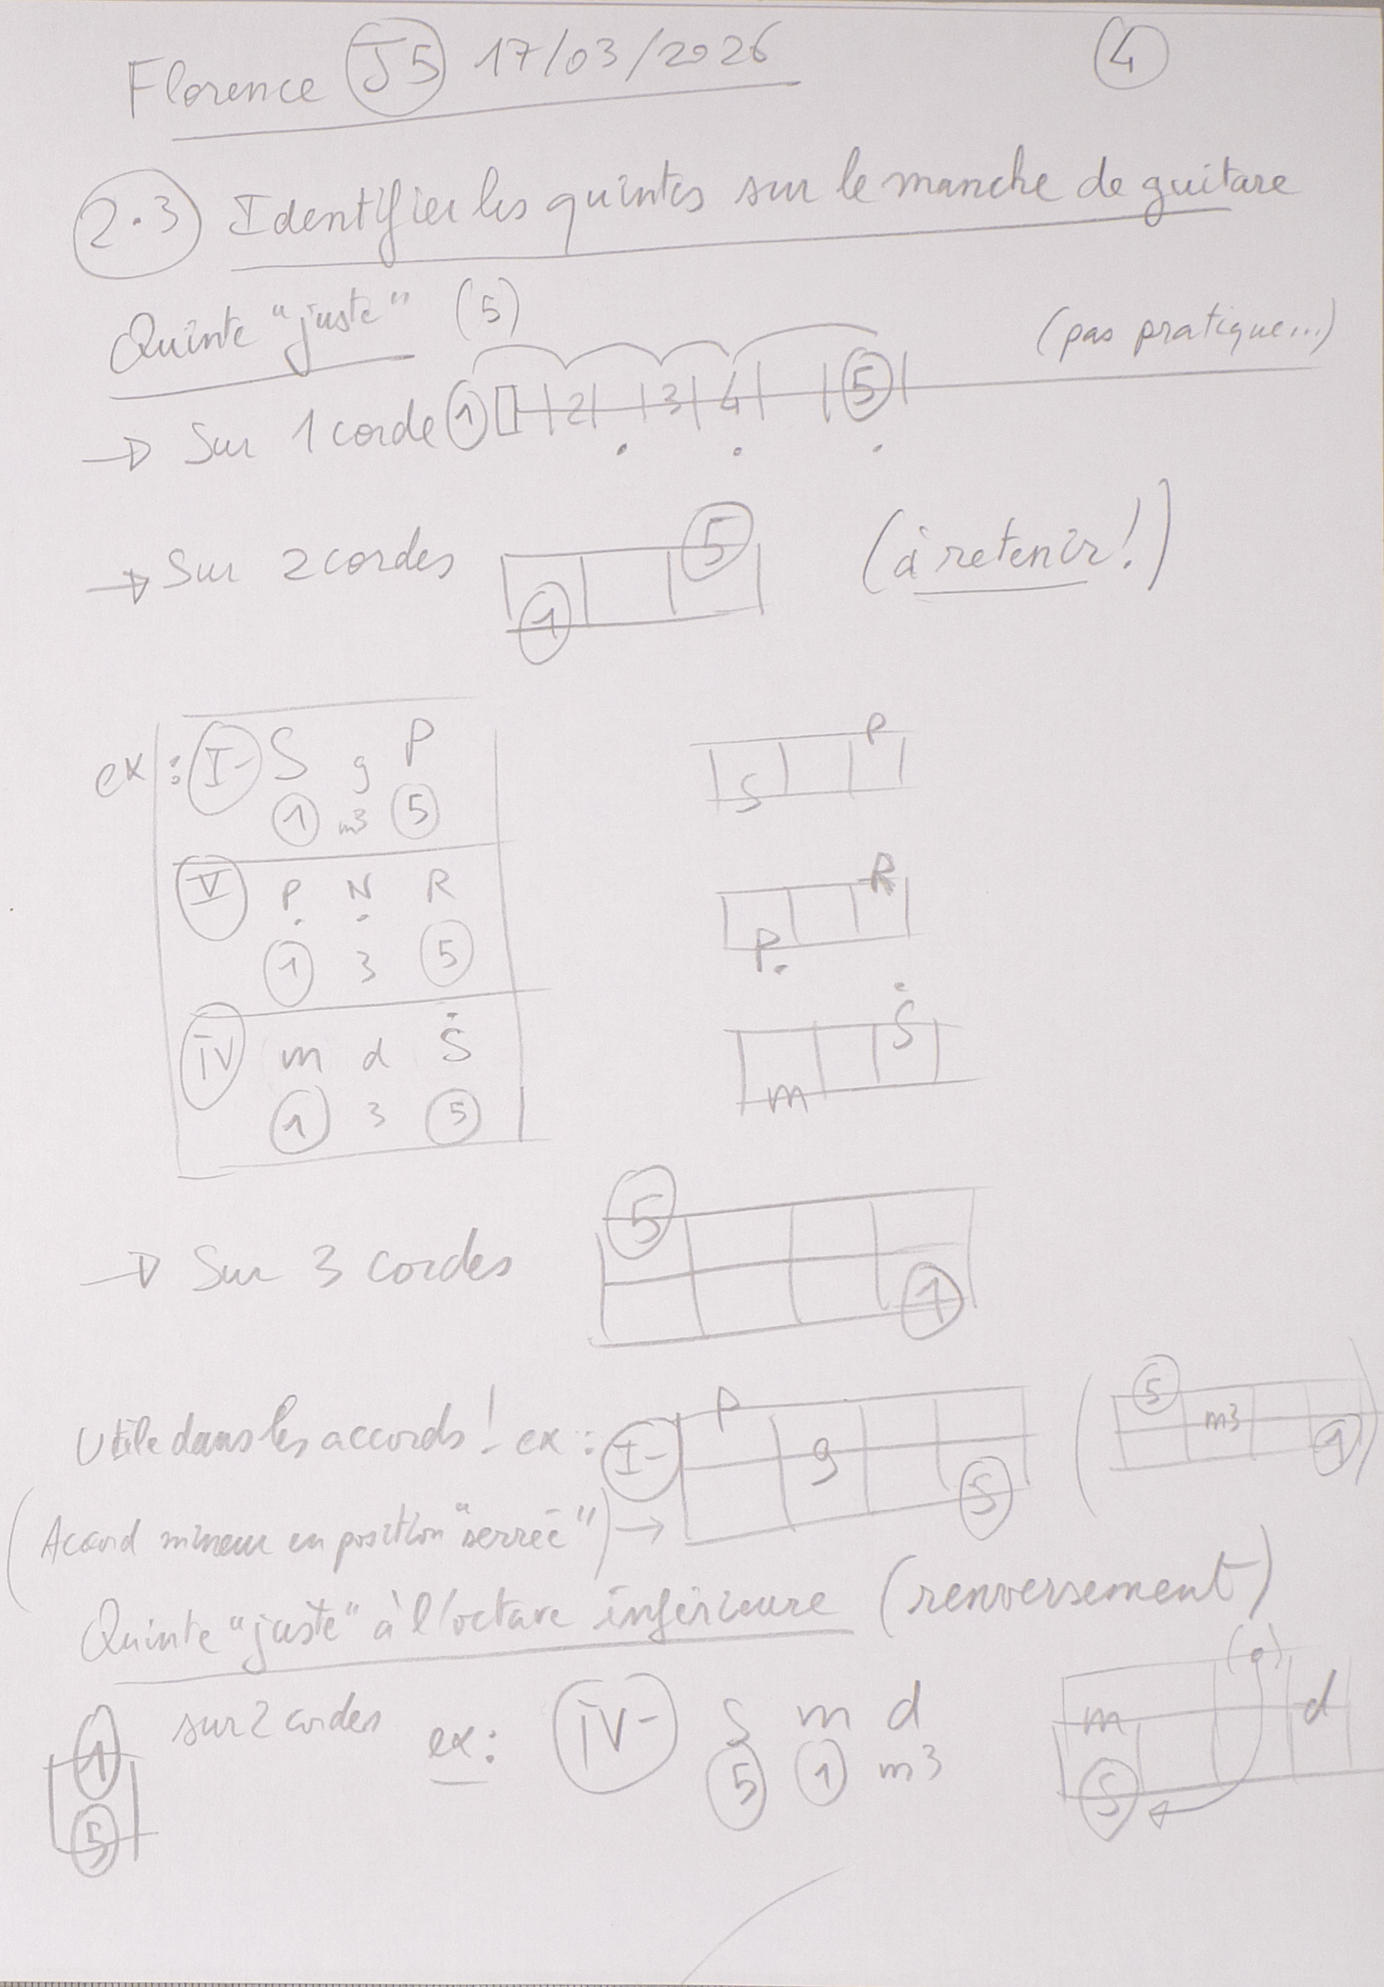 Florence J5 17/03/2026 4
2.3 Identifier les quintes sur le manche de guitare
Quinte "juste" (5)
(pas pratique...)
→ Sur 1 corde 1 2 3 4 5
→ Sur 2 cordes 1 5 (à retenir!)
ex: I- S g P
1 m3 5
S P
V P N R
1 3 5
P R
IV m d S
1 3 5
m S
→ Sur 3 cordes 5 1
Utile dans les accords! ex: I- P g S (5 m3 1)
(Accord mineur en position "serrée") →
Quinte "juste" à l'octave inférieure (renversement)
1 5 sur 2 cordes ex: IV- S m d
5 1 m3
m d S